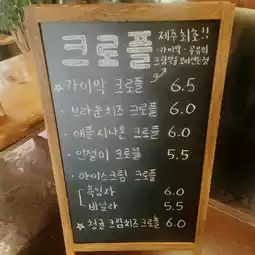 크로플
제주 최초!!
·가이막·우유의
크림만을 모아만든것
☆가이막 크로플 6.5
·브라운치즈 크로플 6.0
·애플시나몬 크로플 6.0
·인절미 크로플 5.5
·아이스크림 크로플
흑임자 6.0
바닐라 5.5
☆청귤 크림치즈 크로플 6.0